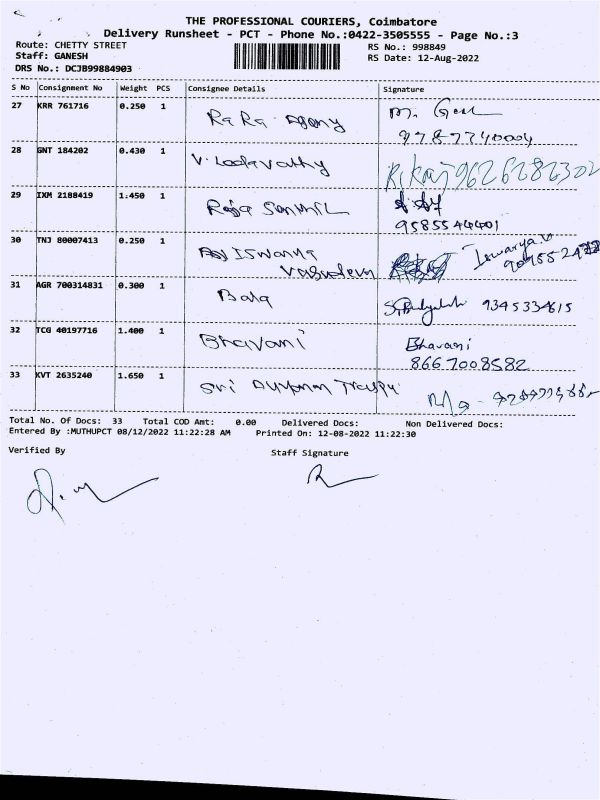 THE PROFESSIONAL COURIERS, Coimbatore
Delivery Runsheet - PCT - Phone No.:0422-3505555 - Page No.:3
Route: CHETTY STREET
RS No.: 998849
Staff: GANESH
RS Date: 12-Aug-2022
DRS No.: DCJB99884903
S No Consignment No Weight PCS Consignee Details Signature
27 KRR 761716 0.250 1 Ra Ra Ageny
9787740004
28 GNT 184202 0.430 1 V. Leelavathy 9626282302
29 IXM 2188419 1.450 1 Raja
9585544401
30 TNJ 80007413 0.250 1 Iswarya.v
Vasudevn
31 AGR 700314831 0.300 1 Bala 9345334615
32 TCG 40197716 1.400 1 Bhavani Bhavani
8667008582
33 KVT 2635240 1.650 1 Sri
Total No. Of Docs: 33 Total COD Amt: 0.00 Delivered Docs: Non Delivered Docs:
Entered By :MUTHUPCT 08/12/2022 11:22:28 AM Printed On: 12-08-2022 11:22:30
Verified By Staff Signature